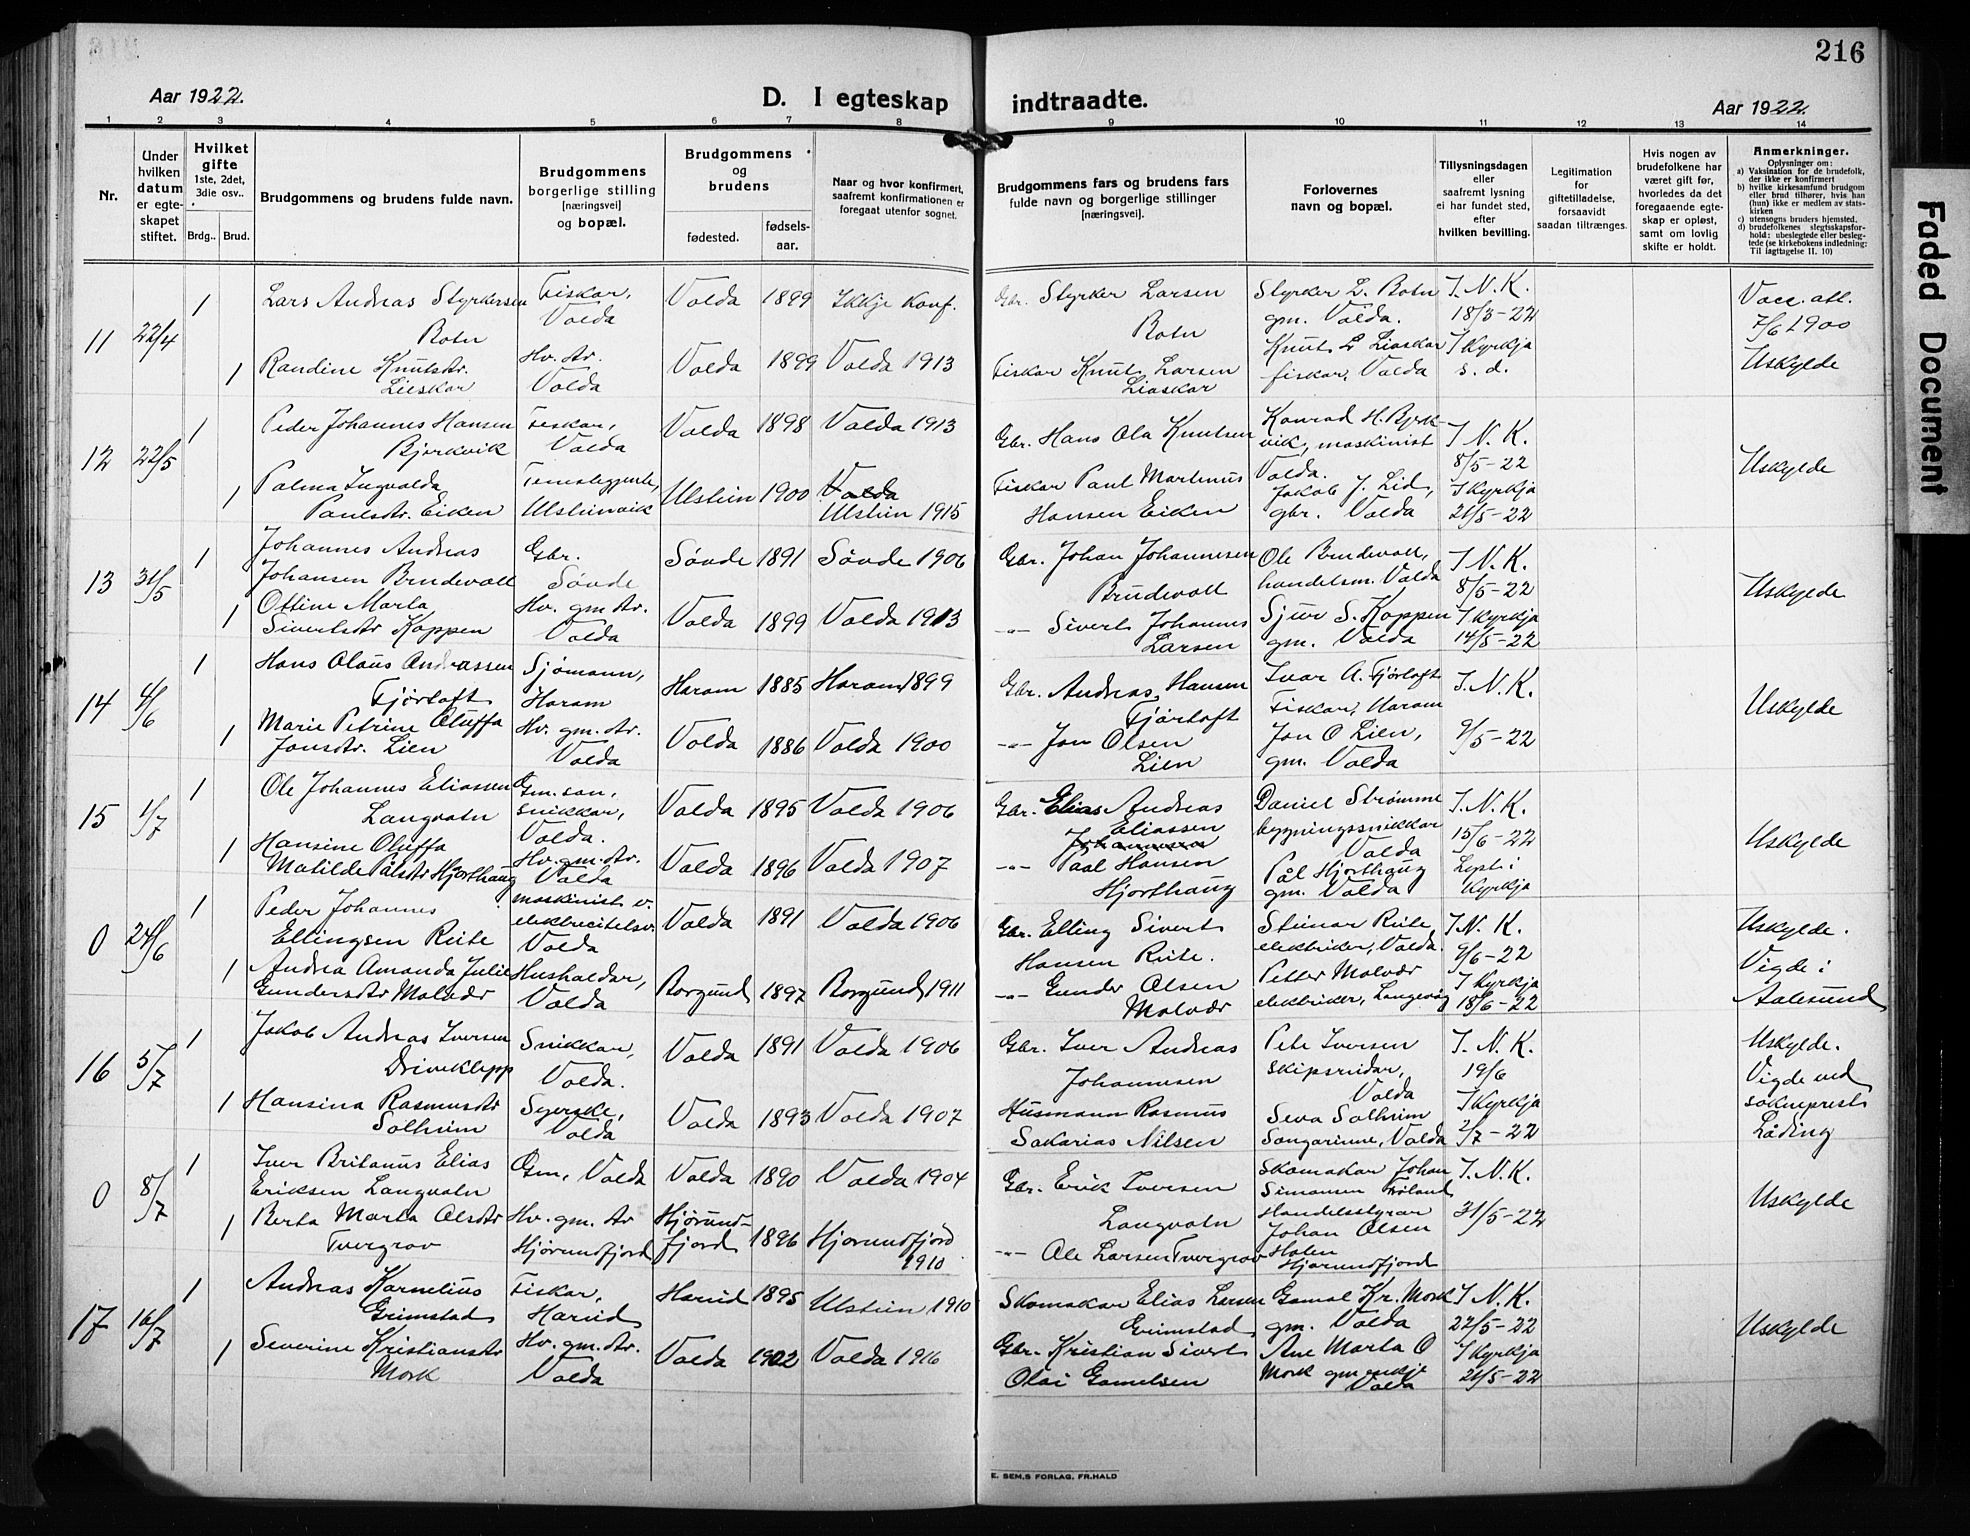 216
Aar 1922.
D. I egteskap
indtraadte.
Aar 1922.
1 2 3 4 5 6 7 8 9 10 11 12 13 14
Nr.
Under hvilken datum er egteskapet stiftet.
Hvilket gifte 1ste, 2det, 3die osv..
Brdg.. Brud.
Brudgommens og brudens fulde navn.
Brudgommens borgerlige stilling [næringsvei] og bopæl.
Brudgommens og brudens
fødested.
fødselsaar.
Naar og hvor konfirmert, saafremt konfirmationen er foregaat utenfor sognet.
Brudgommens fars og brudens fars fulde navn og borgerlige stillinger [næringsvei].
Forlovernes navn og bopæl.
Tillysningsdagen eller saafremt lysning ei har fundet sted, efter hvilken bevilling.
Legitimation for giftetilladelse, forsaavidt saadan tiltrænges.
Hvis nogen av brudefolkene har været gift før, hvorledes da det foregaaende egteskap er opløst, samt om lovlig skifte er holdt.
Anmerkninger.
Oplysninger om:
a) Vaksination for de brudefolk, der ikke er konfirmert
b) hvilke kirkesamfund brudgom eller brud tilhører, hvis han (hun) ikke er medlem av statskirken
c) utensogns bruders hjemsted.
d) brudefolkenes slegtsskapsforhold: ubeslegtede eller beslegtede (se kirkebokens indledning: Til iagttagelse II. 10)
11 22/4 1 Lars Andreas Styrkersen Botn Fiskar, Volda Volda 1899 Ikkje Konf. Gbr. Styrker Larsen Botn Styrker L. Botn gm. Volda. I. N. K. 18/3-22 Vacc. att. 7/6 1900
1 Randine Knutsdtr. Lieskar Hv. dtr. Volda Volda 1899 Volda 1913 Fiskar Knut Larsen Liaskar Knut L Liaskar fiskar, Volda I Kyrkja s. d. Uskylde
12 22/5 1 Peder Johannes Hansen Bjørkvik Fiskar, Volda Volda 1898 Volda 1913 Gbr. Hans Ola Knutsen Konrad H. Bjrkvik, maskinist Volda. I N. K. 8/5-22 Uskylde
1 Palma Ingvalda Paulsdtr. Eiken Ulsteinvik Ulstein 1900 Volda Ulstein 1915 Fiskar Paul Martinus Hansen Eiken Jakob J. Lid, gbr. Volda I Kyrkja 21/5-22
13 31/5 1 Johannes Andreas Johansen Brudevoll Gbr. Søvde Søvde 1891 Søvde 1906 Gbr. Johan Johannesen Brudevoll Ole Brudevoll, handelsm. Volda I. N. K. 8/5-22 Uskylde
1 Ottine Marta Sivertsdtr Koppen Hv. gm dtr. Volda Volda 1899 Volda 1913 -"- Sivert Johannes Larsen Sjur S. Koppen gm. Volda I Kyrkja 14/5-22
14 4/6 1 Hans Olaus Andreassen Fjørtoft Sjømann, Haram Haram 1885 Haram 1899 Gbr. Andreas Hansen Fjørtoft Ivar A. Fjørtoft Fiskar, Haram I. N. K. Uskylde
1 Marie Petrine Oluffa Jonsdtr. Lien Hv. gm. dtr. Volda Volda 1886 Volda 1900 -"- Jon Olsen Lien Jon O Lien, gm. Volda 9/5-22
15 1/7 1 Ole Johannes Eliassen Langvatn Gm. son, snikkar, Volda. Volda 1895 Volda 1906 Gbr. Elias Andreas Eliassen Johannesen Daniel Strømme bygningssnikkar Volda I. N. K. 15/6-22 Uskylde
1 Hansine Oluffa Matilde Pålsdtr Hjorthaug Hv. gm. dtr. Volda Volda 1896 Volda 1907 -"- Paal Hansen Hjorthaug Pål Hjorthaug gm. Volda Lyst i Kyrkja
0 24/6 1 Peder Johannes Ellingsen Riite maskinist v. elektrecitetsv. Volda Volda 1891 Volda 1906 Gbr. Elling Sivert Hansen Riite. Steinar Riite, elektriker, Volda. I N. K. 9/6-22 Uskylde.
1 Andrea Amanda Julie Gundersdtr Molvær Husholdar, Volda Borgund 1897 Borgund 1911 -"- Gunder Olsen Molvær Petter Molvær elektriker, Langevåg I Kyrkja 18/6-22 Vigde i Aalesund
16 5/7 1 Jakob Andreas Iversen Driveklepp Snikkar, Volda. Volda 1891 Volda 1906 Gbr. Iver Andreas Johannesen Pete Iversen skipsreidar, Volda I. N. K. 19/6 Uskylde.
1 Hansina Rasmusdtr Solheim Syerske, Volda Volda 1893 Volda 1907 Husmann Rasmus Sakarias Nilsen Seva Solheim Songarinne, Volda I Kyrkja 2/7-22 Vigde ved sokneprest Låding
0 8/7 1 Iver Britanus Elias Eriksen Langvatn Gm, Volda Volda 1890 Volda 1904 Gbr. Erik Iversen Langvatn Skomakar Johan Simonsen Frøland I. N. K. 31/5-22 Uskylde
1 Berta Marta Olsdtr Tvergrov Hv. gm. dtr Hjørundfjord Hjørundfjord 1896 Hjorundfjord 1910 -"- Ole Larsen Tvergrov Handelsstyrar Johan Olsen Holen Hjørundfjord
17 16/7 1 Andreas Kornelius Grimstad Fiskar, Hareid Hareid 1895 Ulstein 1910 Skomakar Elias Larsen Grimstad Gamal Kr. Mork gm. Volda I. N. K. 22/5-22 Uskylde
1 Severine Kristiansdtr Mork Hv. gm. dtr. Volda Volda 1902 Volda 1916 Gbr. Kristian Sivert Olai Gamelsen Ane Marta O Mork gm enkje Volda I Kyrkja 21/5-22
E. SEM,S FORLAG, FR.HALD
Faded Document